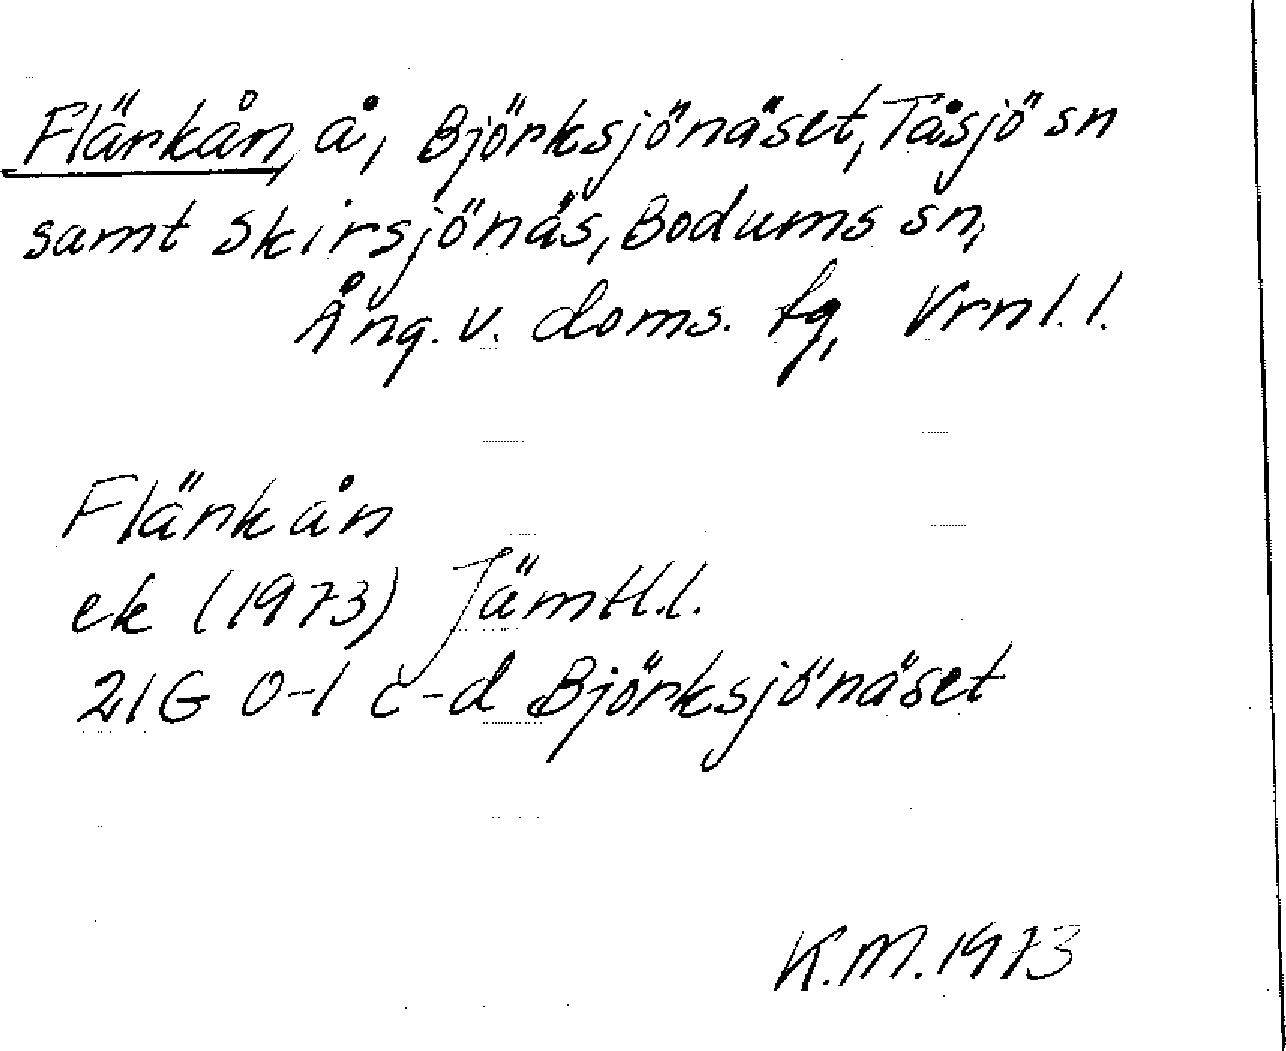 Flärkån, å, Björksjönäset, Tåsjö sn
samt Skirsjönäs, Bodums sn,
Ång. v. doms. tg, Vrnl. l.
Flärkån
ek (1973) Jämtl. l.
21G 0-1 c-d Björksjönäset
K.M. 1973